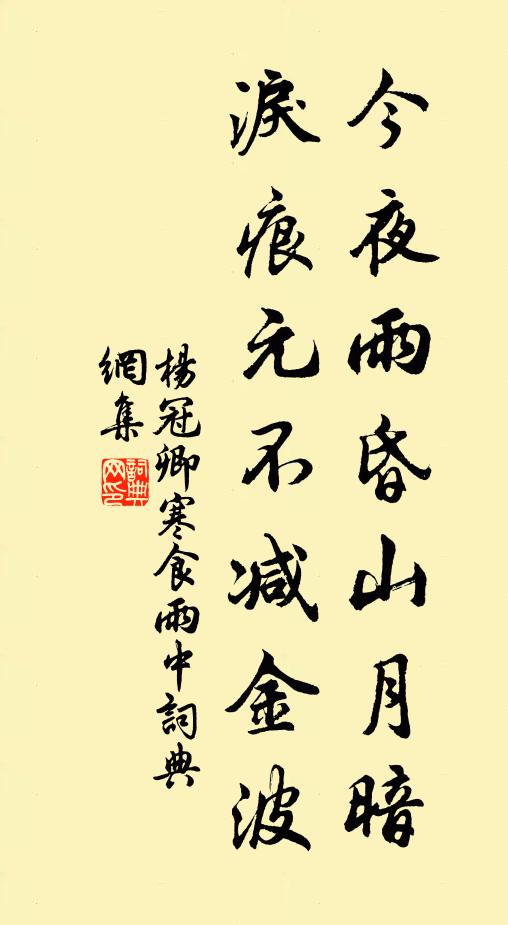 今夜雨昏山月暗
淚痕元不減金波
楊冠卿寒食雨中詞典
網集
詞典
网印